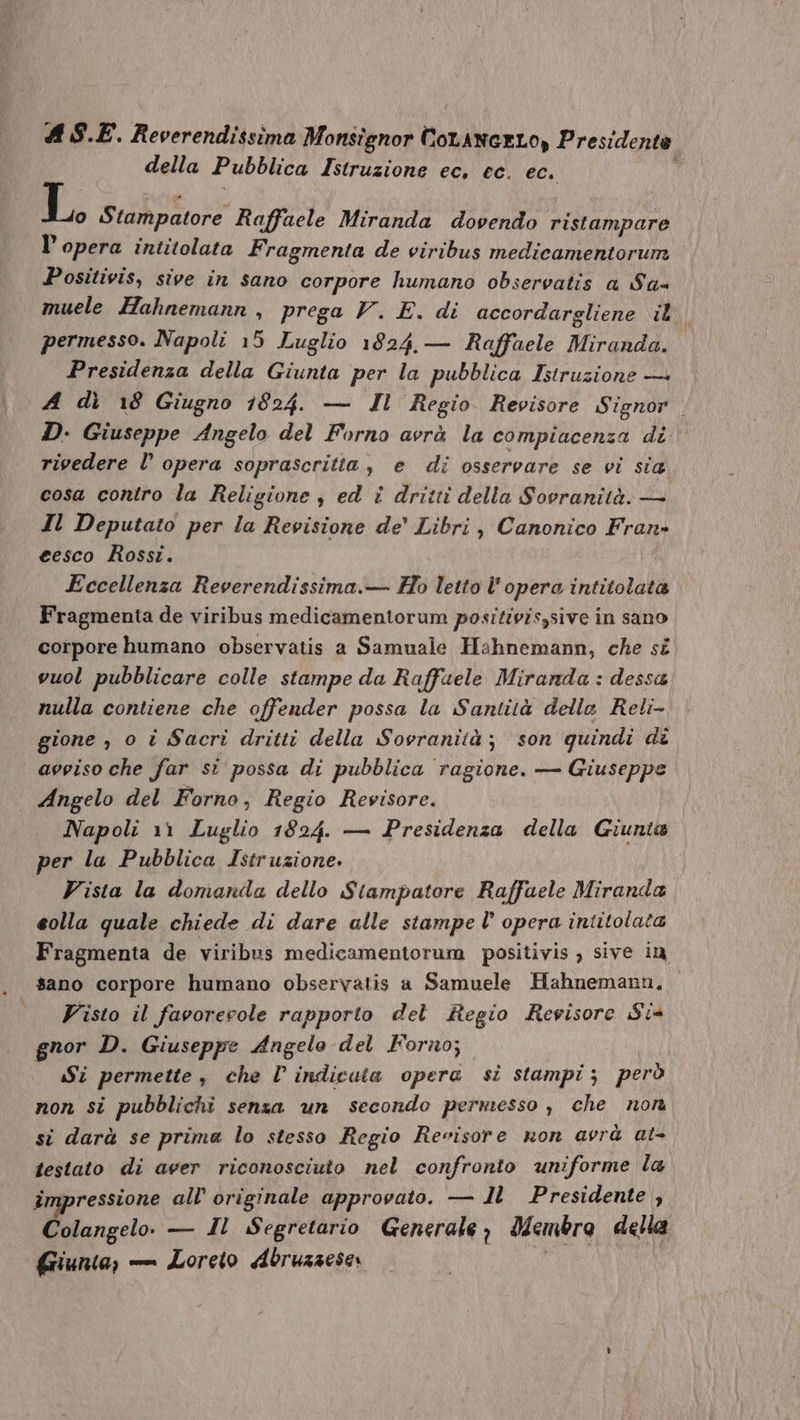 A S.E. Reverendissima Monsignor COLANGELO, Presidente
della Pubblica Istruzione ec. ec. ec.
Lo Stampatore Raffaele Miranda dovendo ristampare
l'opera intitolata Fragmenta de viribus medicamentorum
Positivis, sive in sano corpore humano observatis a Sa-
muele Hahnemann, prega V. E. di accordargliene il
permesso. Napoli 15 Luglio 1824. — Raffaele Miranda.
Presidenza della Giunta per la pubblica Istruzione —
A dì 18 Giugno 1824. — Il Regio Revisore Signor
D. Giuseppe Angelo del Forno avrà la compiacenza di
rivedere l' opera soprascritta, e di osservare se vi sia
cosa contro la Religione, ed i dritti della Sovranità. —
Il Deputato per la Revisione de' Libri, Canonico Fran-
cesco Rossi.
Eccellenza Reverendissima. — Ho letto l'opera intitolata
Fragmenta de viribus medicamentorum positivis, sive in sano
corpore humano observatis a Samuale Hahnemann, che si
vuol pubblicare colle stampe da Raffaele Miranda : dessa
nulla contiene che offender possa la Santità della Reli-
gione, o i Sacri dritti della Sovranità; son quindi di
avviso che far si possa di pubblica ragione. — Giuseppe
Angelo del Forno, Regio Revisore.
Napoli 11 Luglio 1824. — Presidenza della Giunta
per la Pubblica Istruzione.
Vista la domanda dello Stampatore Raffaele Miranda
colla quale chiede di dare alle stampe l' opera intitolata
Fragmenta de viribus medicamentorum positivis, sive in
sano corpore humano observatis a Samuele Hahnemann.
Visto il favorevole rapporto del Regio Revisore Si-
gnor D. Giuseppe Angelo del Forno;
Si permette, che l' indicata opera si stampi; però
non si pubblichi senza un secondo permesso, che non
si darà se prima lo stesso Regio Revisore non avrà at-
testato di aver riconosciuto nel confronto uniforme la
impressione all' originale approvato. — Il Presidente,
Colangelo. — Il Segretario Generale, Membro della
Giunta, — Loreto Abruzzese.